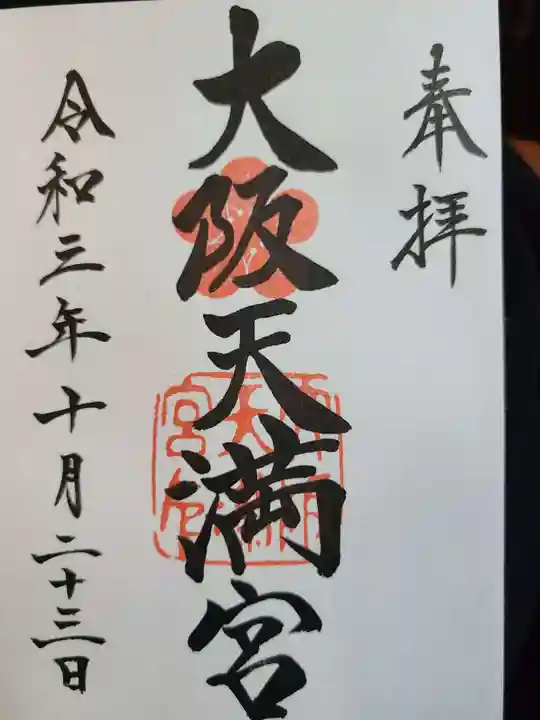 奉拝
大阪天満宮
令和三年十月二十三日